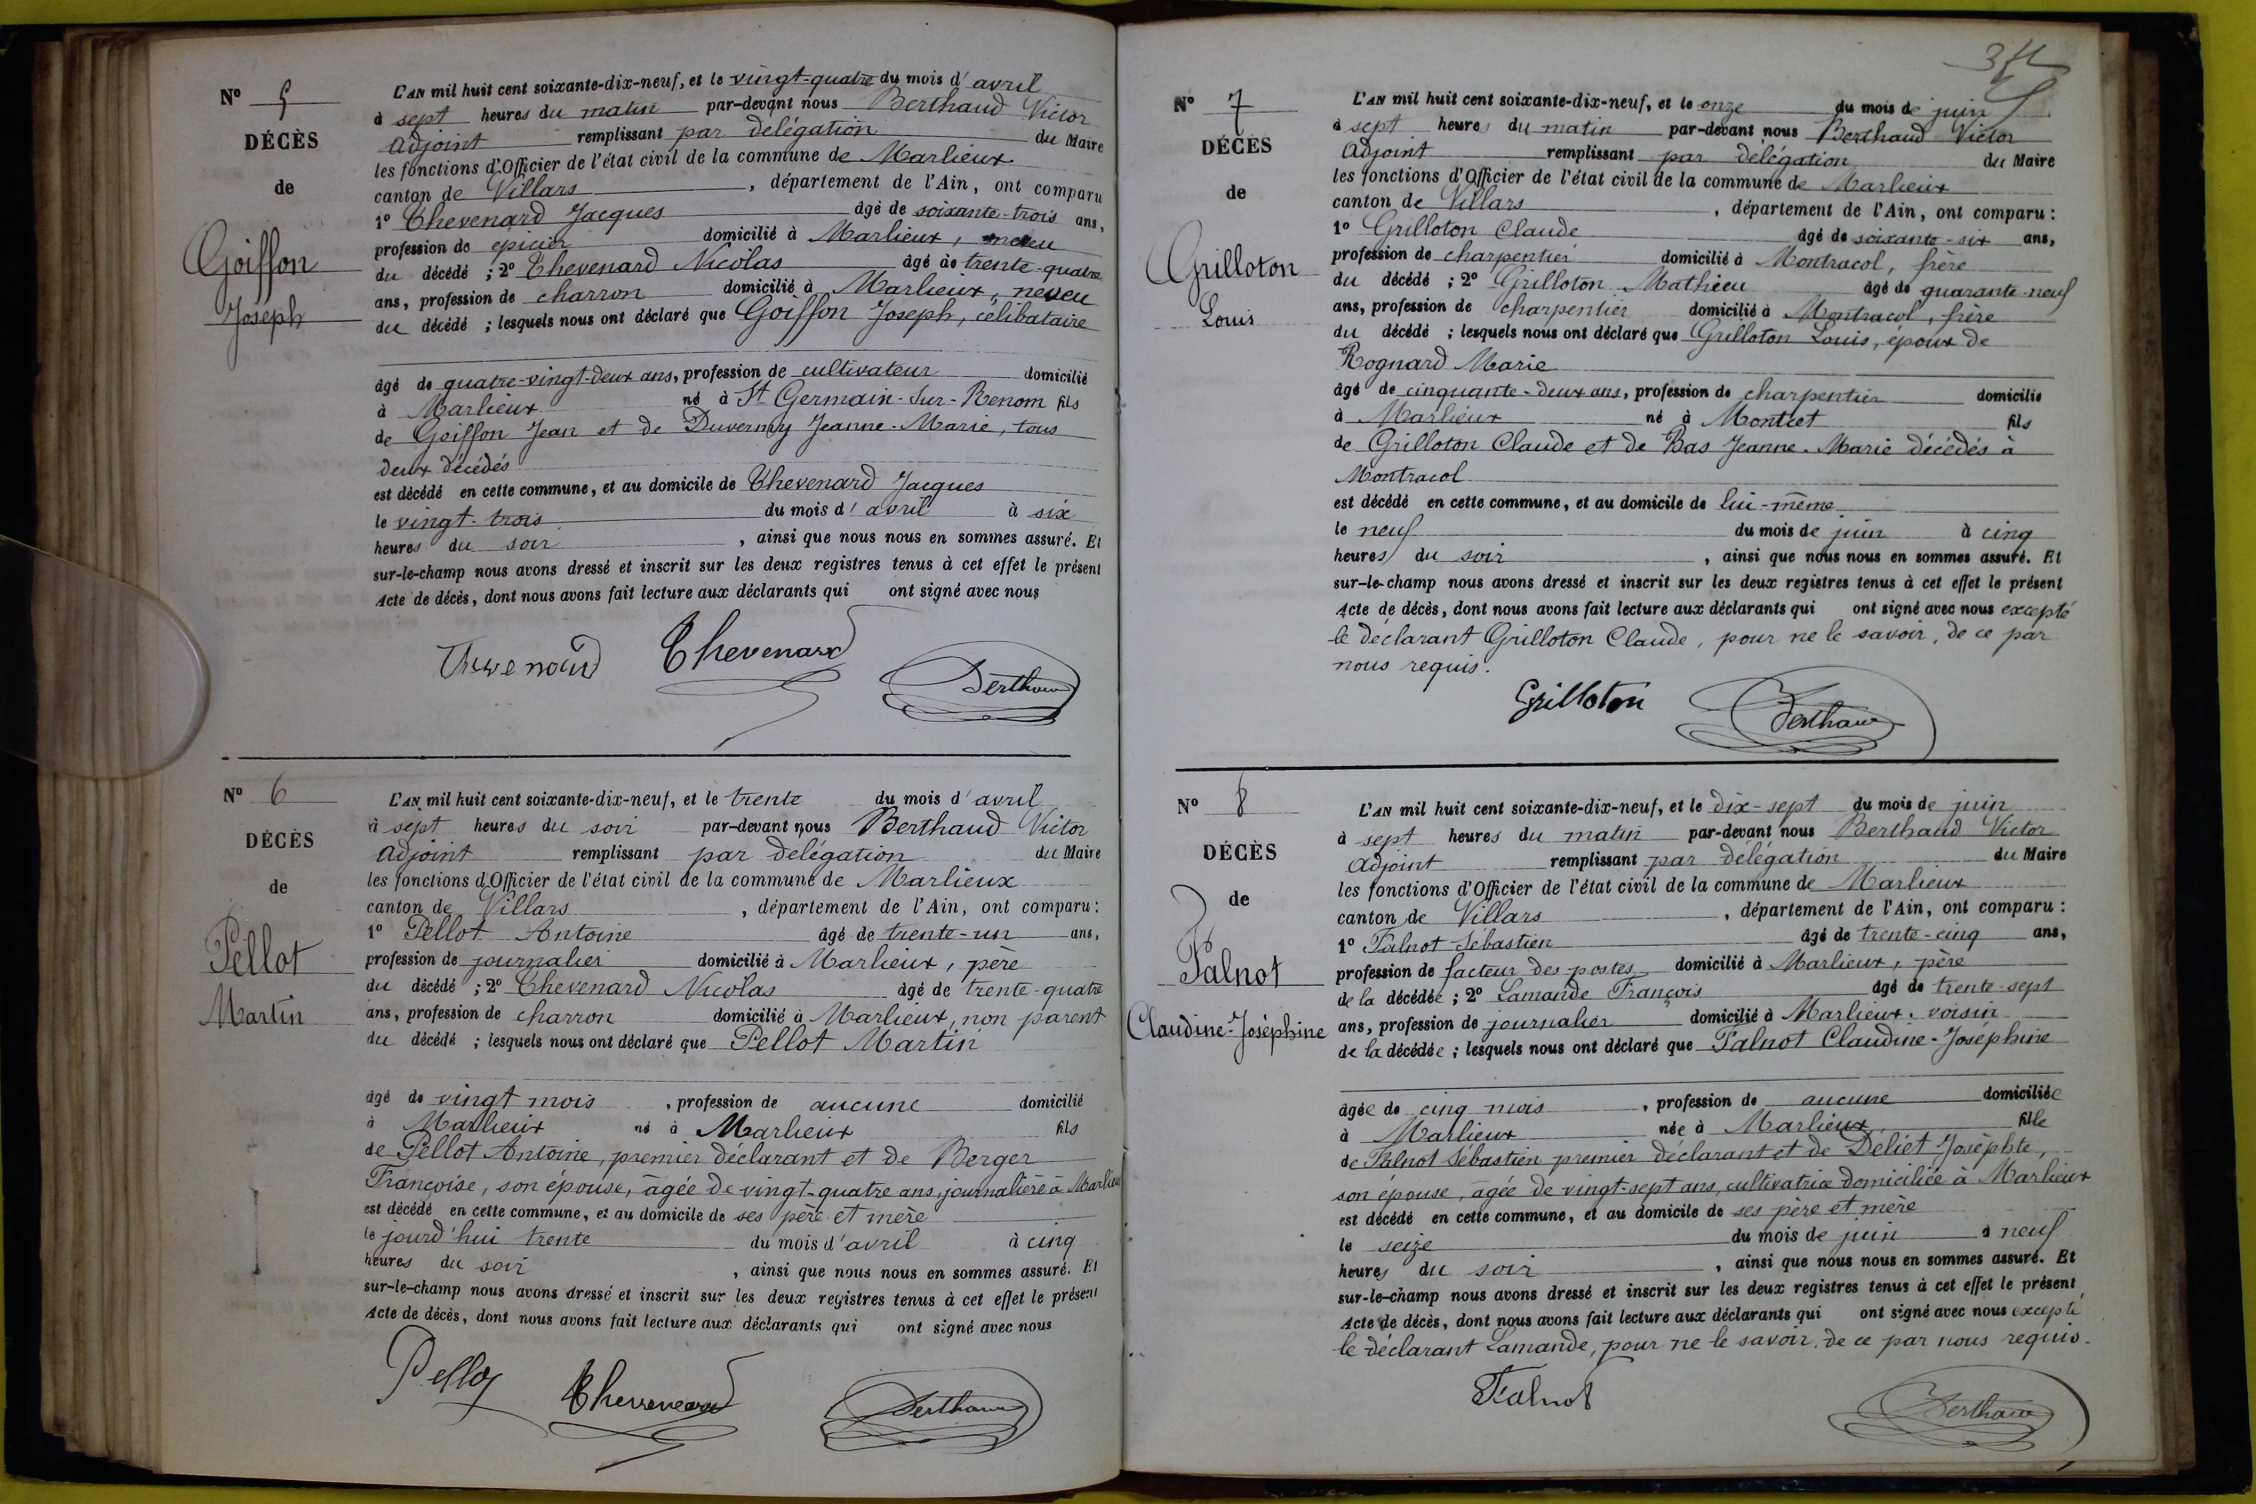 N° 5
DÉCÈS
de
Goiffon
Joseph
L'AN mil huit cent soixante-dix-neuf, et le vingt-quatre du mois d'avril
à sept heures du matin par-devant nous Berthaud Victor
adjoint remplissant par délégation du Maire
les fonctions d'Officier de l'état civil de la commune de Marlieux
canton de Villars, département de l'Ain, ont comparu
1° Chevenard Jacques âgé de soixante-trois ans,
profession de épicier domicilié à Marlieux, neveu
du décédé ; 2° Chevenard Nicolas âgé de trente-quatre
ans, profession de charron domicilié à Marlieux, neveu
du décédé ; lesquels nous ont déclaré que Goiffon Joseph, célibataire
âgé de quatre-vingt-deux ans, profession de cultivateur domicilié
à Marlieux né à St Germain-sur-Renom fils
de Goiffon Jean et de Duvernay Jeanne-Marie, tous
deux décédés
est décédé en cette commune, et au domicile de Chevenard Jacques
le vingt-trois du mois d'avril à six
heures du soir, ainsi que nous nous en sommes assuré. Et
sur-le-champ nous avons dressé et inscrit sur les deux registres tenus à cet effet le présent
Acte de décès, dont nous avons fait lecture aux déclarants qui ont signé avec nous
Chevenard Chevenard Berthaud
N° 6
DÉCÈS
de
Pellot
Martin
L'AN mil huit cent soixante-dix-neuf, et le trente du mois d'avril
à sept heures du soir par-devant nous Berthaud Victor
adjoint remplissant par délégation du Maire
les fonctions d'Officier de l'état civil de la commune de Marlieux
canton de Villars, département de l'Ain, ont comparu :
1° Pellot Antoine âgé de trente-un ans,
profession de journalier domicilié à Marlieux, père
du décédé ; 2° Chevenard Nicolas âgé de trente-quatre
ans, profession de charron domicilié à Marlieux, non parent
du décédé ; lesquels nous ont déclaré que Pellot Martin
âgé de vingt mois, profession de aucune domicilié
à Marlieux né à Marlieux fils
de Pellot Antoine, premier déclarant et de Berger
Françoise, son épouse, âgée de vingt-quatre ans, journalière à Marlieux
est décédé en cette commune, et au domicile de ses père et mère
le jourd'hui trente du mois d'avril à cinq
heures du soir, ainsi que nous nous en sommes assuré. Et
sur-le-champ nous avons dressé et inscrit sur les deux registres tenus à cet effet le présent
Acte de décès, dont nous avons fait lecture aux déclarants qui ont signé avec nous
Pellot Chevenard Berthaud
N° 7
DÉCÈS
de
Grilloton
Louis
L'AN mil huit cent soixante-dix-neuf, et le onze du mois de juin
à sept heures du matin par-devant nous Berthaud Victor
adjoint remplissant par délégation du Maire
les fonctions d'Officier de l'état civil de la commune de Marlieux
canton de Villars, département de l'Ain, ont comparu :
1° Grilloton Claude âgé de soixante-six ans,
profession de charpentier domicilié à Montracol, frère
du décédé ; 2° Grilloton Mathieu âgé de quarante-neuf
ans, profession de charpentier domicilié à Montracol, frère
du décédé ; lesquels nous ont déclaré que Grilloton Louis, époux de
Rognard Marie
âgé de cinquante-deux ans, profession de charpentier domicilié
à Marlieux né à Montcet fils
de Grilloton Claude et de Bas Jeanne-Marie décédés à
Montracol
est décédé en cette commune, et au domicile de lui-même
le neuf du mois de juin à cinq
heures du soir, ainsi que nous nous en sommes assuré. Et
sur-le-champ nous avons dressé et inscrit sur les deux registres tenus à cet effet le présent
Acte de décès, dont nous avons fait lecture aux déclarants qui ont signé avec nous excepté
le déclarant Grilloton Claude, pour ne le savoir, de ce par
nous requis.
Grilloton Berthaud
N° 8
DÉCÈS
de
Falnot
Claudine-Joséphine
L'AN mil huit cent soixante-dix-neuf, et le dix-sept du mois de juin
à sept heures du matin par-devant nous Berthaud Victor
adjoint remplissant par délégation du Maire
les fonctions d'Officier de l'état civil de la commune de Marlieux
canton de Villars, département de l'Ain, ont comparu :
1° Falnot Sébastien âgé de trente-cinq ans,
profession de facteur des postes domicilié à Marlieux, père
de la décédée ; 2° Lamande François âgé de trente-sept
ans, profession de journalier domicilié à Marlieux, voisin
de la décédée ; lesquels nous ont déclaré que Falnot Claudine-Joséphine
âgée de cinq mois, profession de aucune domiciliée
à Marlieux née à Marlieux fille
de Falnot Sébastien premier déclarant et de Deliet Josephte,
son épouse, âgée de vingt-sept ans, cultivatrice domiciliée à Marlieux
est décédé en cette commune, et au domicile de ses père et mère
le seize du mois de juin à neuf
heures du soir, ainsi que nous nous en sommes assuré. Et
sur-le-champ nous avons dressé et inscrit sur les deux registres tenus à cet effet le présent
Acte de décès, dont nous avons fait lecture aux déclarants qui ont signé avec nous excepté
le déclarant Lamande, pour ne le savoir, de ce par nous requis.
Falnot Berthaud